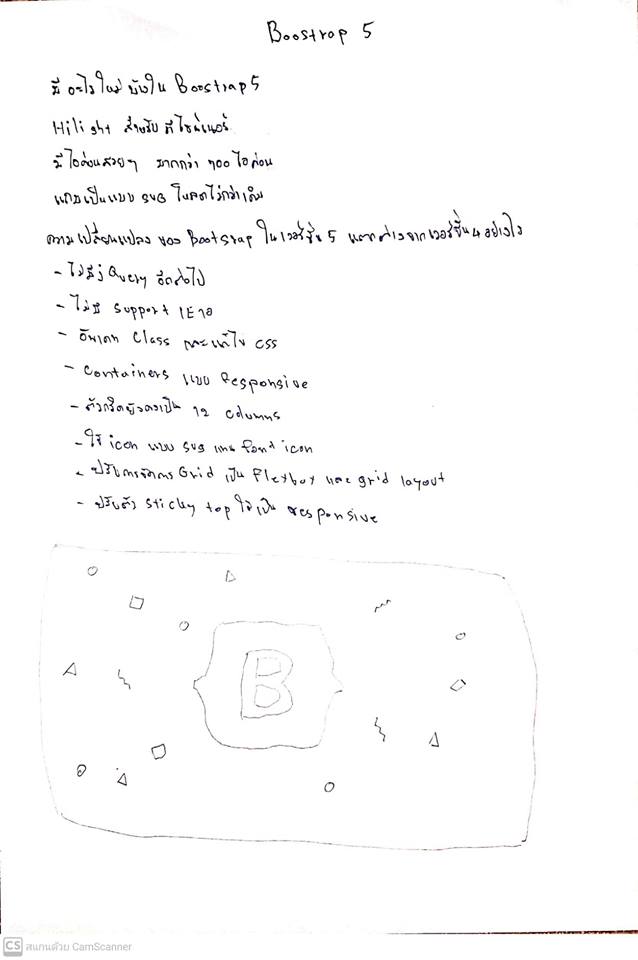 Boostrap 5
มีอะไรใหม่บ้างใน Boostrap 5
Hilight สำหรับดีไซน์เนอร์
มีไอค่อนสวยๆ มากกว่า 700 ไอค่อน
แถมเป็นแบบ SVG โหลดไวกว่าเดิม
ความเปลี่ยนแปลงของ Bootstrap ในเวอร์ชั่น 5 แตกต่างจากเวอร์ชั่น 4 อย่างไร
- ไม่มี jQuery อีกต่อไป
- ไม่มี Support IE 10
- อัพเดท Class และแก้ไข CSS
- Containers แบบ Responsive
- ตัวกริดยังคงเป็น 12 columns
- ใช้ icon แบบ svg แทน font icon
- ปรับการจัดการ Grid เป็น Flexbox และ grid layout
- ปรับตัว Sticky top ให้เป็น Responsive
B
CS สแกนด้วย CamScanner